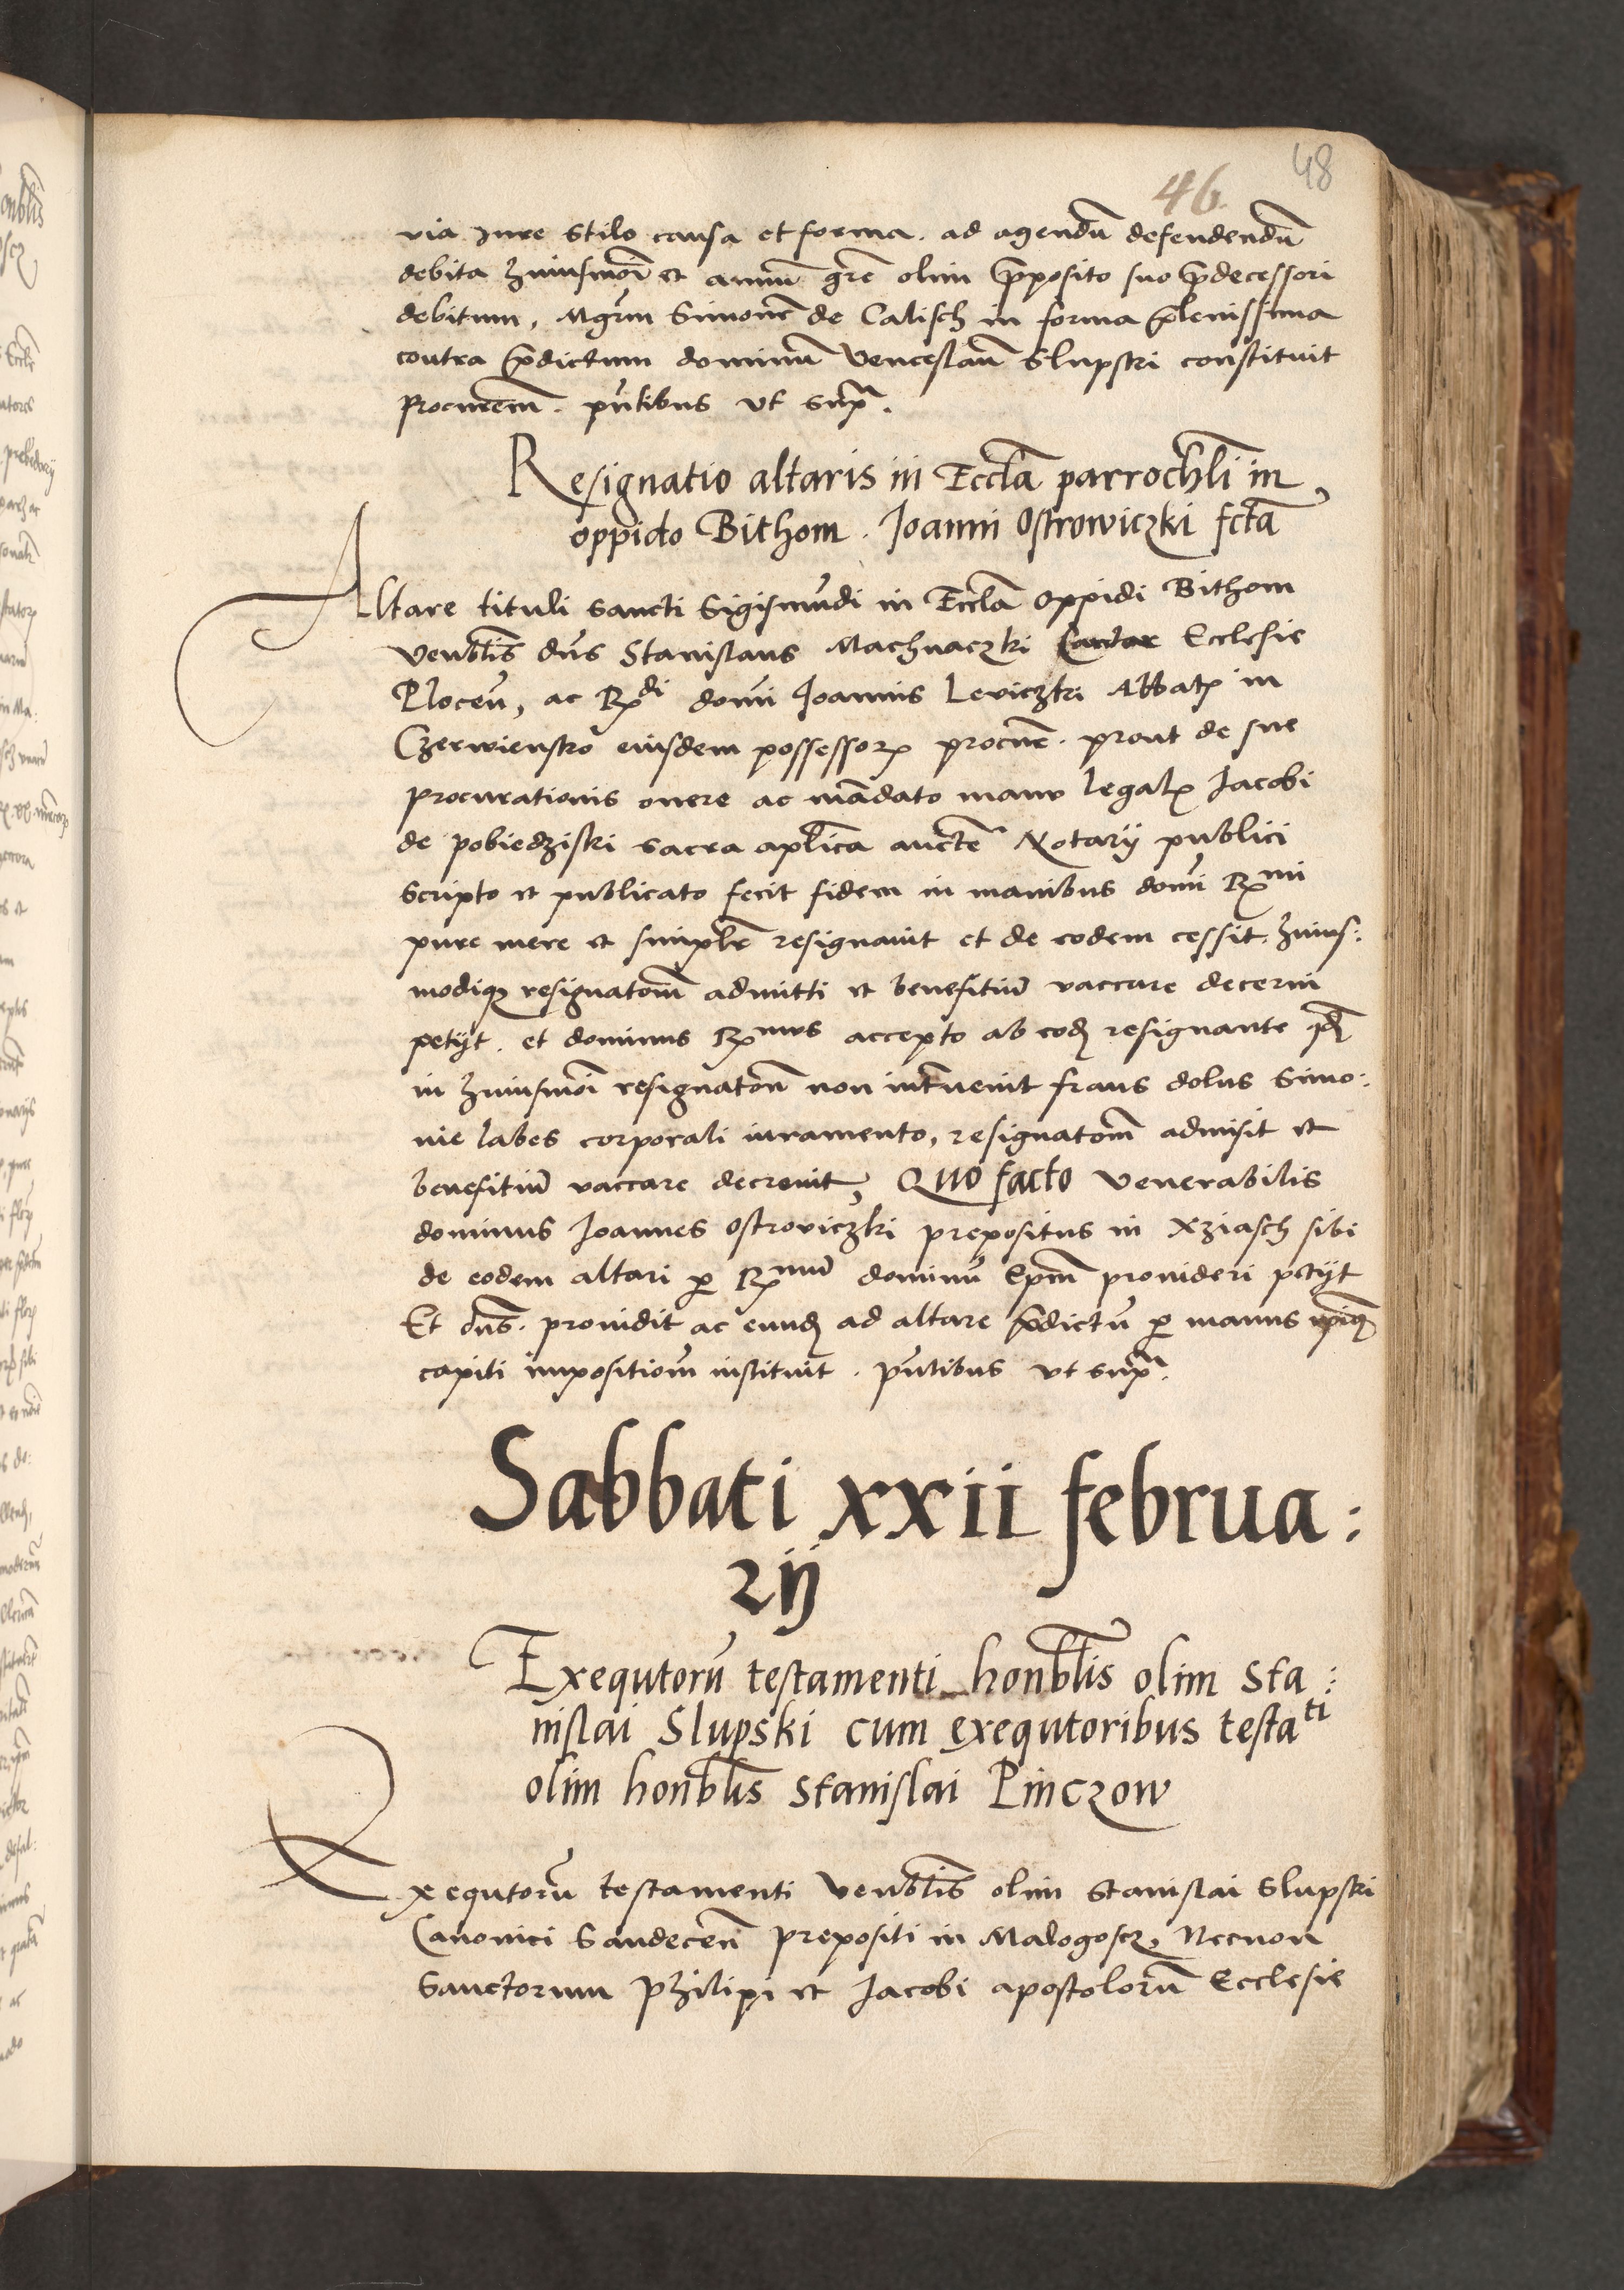 48
46.
via Jure stilo causa et forma. ad agendū defendendū
debita huiusmōi et annuū grē olim p̄posito suo p̄decessori
debitum, Mgr̄m Simonē de Calisch in forma plenissima
contra p̄dictum dominū Venceslaū Slupski constituit
Procurem̄. pn̄tibus vt supᵃ.
Resignatio altaris in Eccl̄a parrochl̄i in
oppido Bithom. Joanni Ostrowiczki fctā
Altare tituli sancti Sigismūdi in Eccl̄a oppidi Bithom
Venbl̄is dn̄s Stanislaus Machnaczki Cantor Ecclesie
Plocen̄, ac Rdi domī Joannis Leviczki Abbatꝭ in
Czerwiensko eiusdem possessorꝭ procur̄. prout de sue
procurationis onere ac mādato manu legalꝭ Jacobi
de pobiedziski sacra aplīca auctē Notarij publici
scripto et publicato fecit fidem in manibus domī Rmi
pure mere et simplr̄ resignauit et de eodem cessit. huius:
modiqꝫ resignatom̄ admitti et benefitiū vaccare decerni
petijt. et dominus Rmus accepto ab eodꝫ resignante qd̄
in huiusmōi resignatōn non intͬuenit fraus dolus simo:
nie labes corporali iuramento, resignatom̄ admisit et
benefitiū vaccare decreuit, Quo facto Venerabilis
dominus Joannes Ostroviczki prepositus in Xziasch sibi
de eodem altari ꝑ Rmū dominū Ep̄m prouideri petijt
Et dn̄s. prouidit ac eundꝫ ad altare p̄dictū ꝑ manus
capiti impositiom̄ instituit. pn̄tibus vt supᵃ.
Sabbati xxii februa:
rij
Exequtorū testamenti honbl̄is olim Sta:
nislai Slupski cum exequtoribus testati
olim honbl̄is Stanislai Pinczow
Exequtorū testamenti Venbl̄is olim Stanislai Slupski
Canonici Sandecen̄ prepositi in Malogoscz, Necnon
Sanctorum Philipi et Jacobi apostolorū Ecclesie